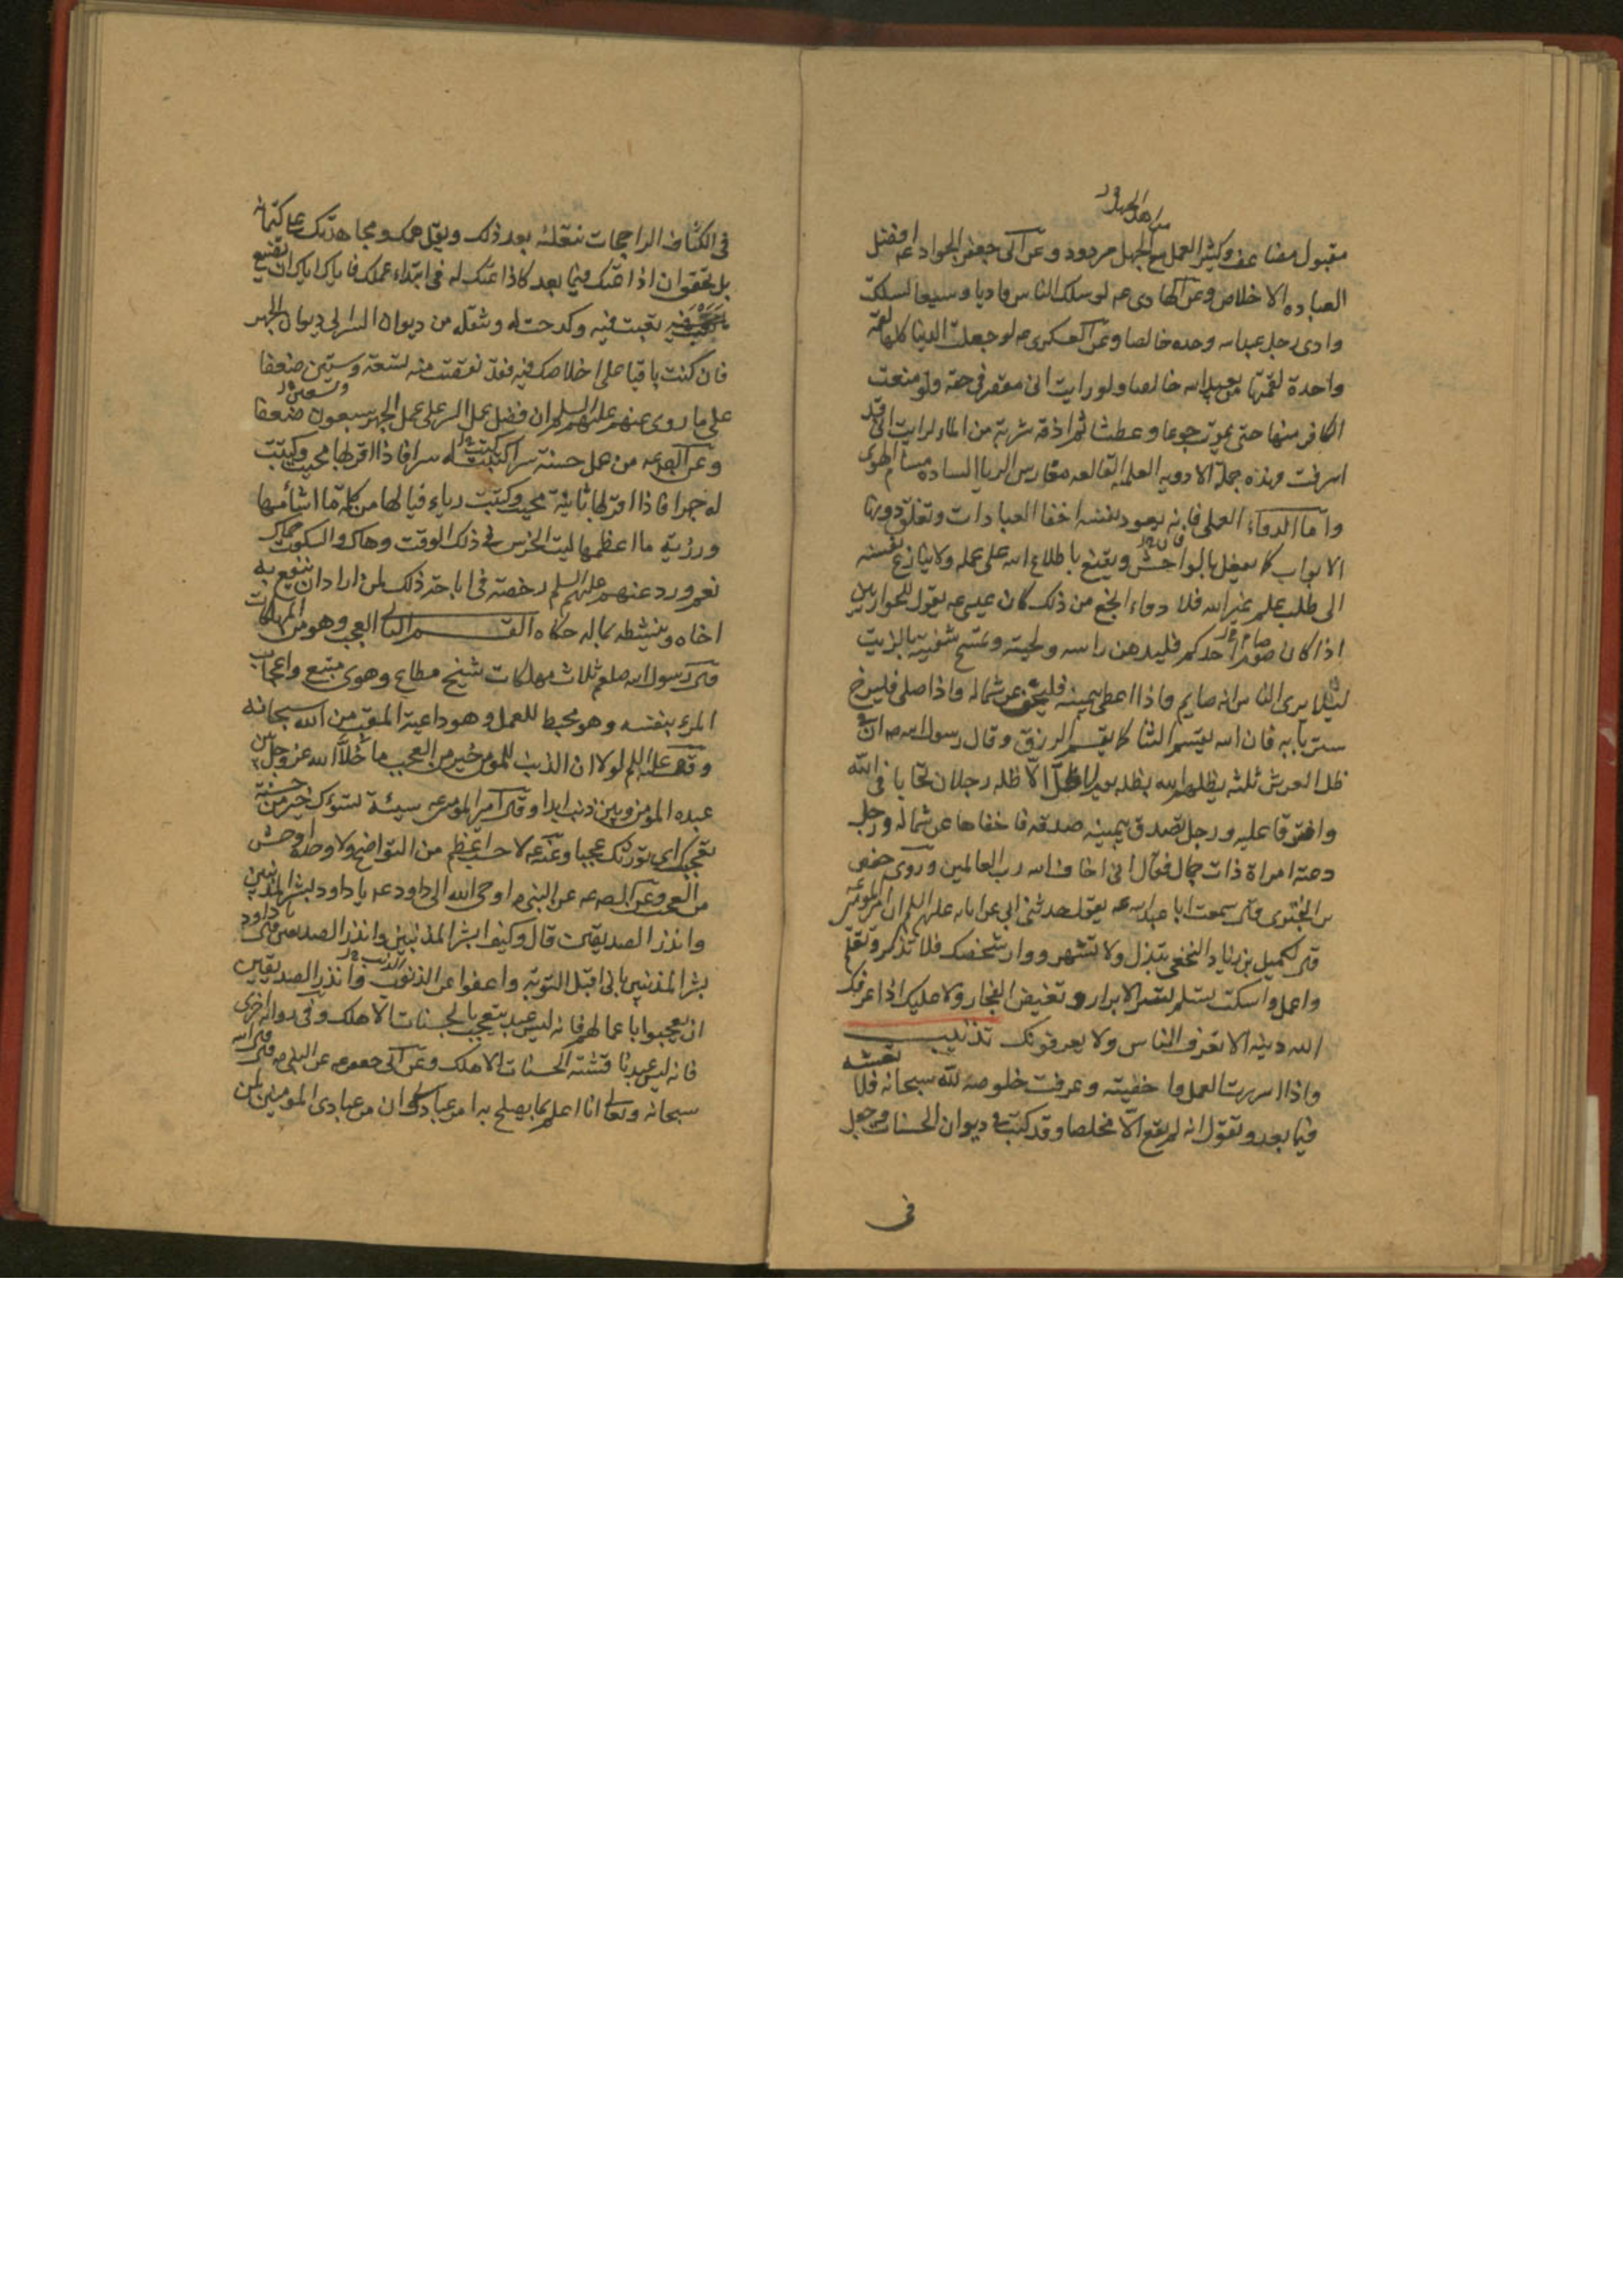 من اهل الجهل
مقبول مضاعف وكثير العمل مع الجهل مردود وعن ابى جعفر الجواد عه افضل
العباده الاخلاص وعن الهادى عه لو سلك الناس واديا وسيعا لسلكت
وادى رجل عبد الله وحده خالصا وعن العسكرى عه لو جعلت الدنيا كلها لقمة
واحدة لقمتها من يعبد الله خالصا ولو رايت انى مقصر فى حقه ولو منعت
الكافر منها حتى يموت جوعا وعطشا ثم اذقته شربة من الماء لرايت انى قد
اسرفت وهذه جملة الادوية العلمية القالعه مغارس الريا الساده مسام الهوى
واما الدواء العملى فانه يعود نفسه اخفا العبادات وتغلق دونها
الابواب كما يفعل بالفواحش ويقنع باطلاع الله على عمله ولا ينازع نفسه
الى طلب علم غير الله فلا دواء انجع من ذلك كان عيسى عه يقول للحواريين
اذا كان صوم احدكم فليدهن راسه ولحيته ويمسح شفتيه بالزيت
لئلا يرى الناس انه صايم واذا اعطى بيمينه فليخف عن شماله واذا صلى فليرخ
ستر بابه فان الله يقسم الثنا كما يقسم الرزق وقال رسول الله ص ان فى
ظل العرش ثلثة يظلهم الله بظله يوم لا ظل الا ظله رجلان تحابا فى الله
وافترقا عليه ورجل تصدق بيمينه صدقه فاخفاها عن شماله ورجل
دعته امراة ذات جمال فقال انى اخاف الله رب العالمين وروى حفص
بن البخترى قال سمعت ابا عبد الله عه يقول حدثنى ابى عن ابائه عليهم السلم ان امير المومنين عه
قال لكميل بن زياد النخعى تبذل ولا تشهر ووار شخصك فلا تذكر وتعلم
واعمل واسكت تسلم تسر الابرار وتغيض الفجار ولا عليك اذا عرفك
الله دينه الا تعرف الناس ولا يعرفونك تذنيب
واذا اسررت العمل واخفيته وعرفت خلوصه لله سبحانه فلا تفشه
فيما بعد وتقول انه لم يقع الا مخلصا وقد كتب فى ديوان الحسنات وجعل
فى
فى الكشاف الراجحات تنقله بعد ذلك ويقل همك ومجاهدتك على كتمانه
بل تحقق ان اذاعتك فيما بعد كاذاعتك له فى ابتداء عملك فاياك اياك ان تضيع
تعبت فيه وكدحت له وتنقله من ديوان السر الى ديوان الجهر
فان كنت باقيا على اخلاصك فيه فقد نقصت منه تسعة وستين ضعفا
وتسعين
على ما روى عنهم عليهم السلم ان فضل عمل السر على عمل الجهر سبعون ضعفا
وعن الصادق عه من عمل حسنة سرا كتبت له سرا فاذا اقر بها محيت وكتبت
له جهرا فاذا اقر بها ثانية محيت وكتبت رياء فيا لها من كلمة ما اشامها
ورزية ما اعظمها ليت الخرس فى ذلك الوقت وهاك والسكوت
نعم ورد عنهم عليهم السلم رخصة فى اباحة ذلك لمن اراد ان ينفع به
اخاه وينشطه بما له حكاه القسم الثانى العجب وهو من المهلكات
قال رسول الله صلعم ثلاث مهلكات شح مطاع وهوى متبع واعجاب
المرء بنفسه وهو محبط للعمل وهو داعية المقت من الله سبحانه
وقال عليه السلم لولا ان الذنب للمومن خير من العجب ما خلا الله عز وجل بين
عبده المومن وبين ذنب ابدا وقال امير المومنين عه سيئة تسوك خير من حسنة
تعجبك اى تورثك عجبا وعنه عه لا حسب اعظم من التواضع ولا وحدة اوحش
من العجب وعن الصادق عه عن النبى ص اوحى الله الى داود عه يا داود بشر المذنبين
وانذر الصديقين قال وكيف ابشر المذنبين وانذر الصديقين قال يا داود
بشر المذنبين بانى اقبل التوبة واعفوا عن الذنوب وانذر الصديقين
ان يعجبوا باعمالهم فانه ليس عبد يتعجب بالحسنات الا هلك وفى روايه اخرى
فانه ليس عبد ناقشته الحسنات الا هلك وعن ابى جعفر عه عن النبى ص قال الله
سبحانه وتعالى انا اعلم بما يصلح به امر عبادى وان من عبادى المومنين لمن